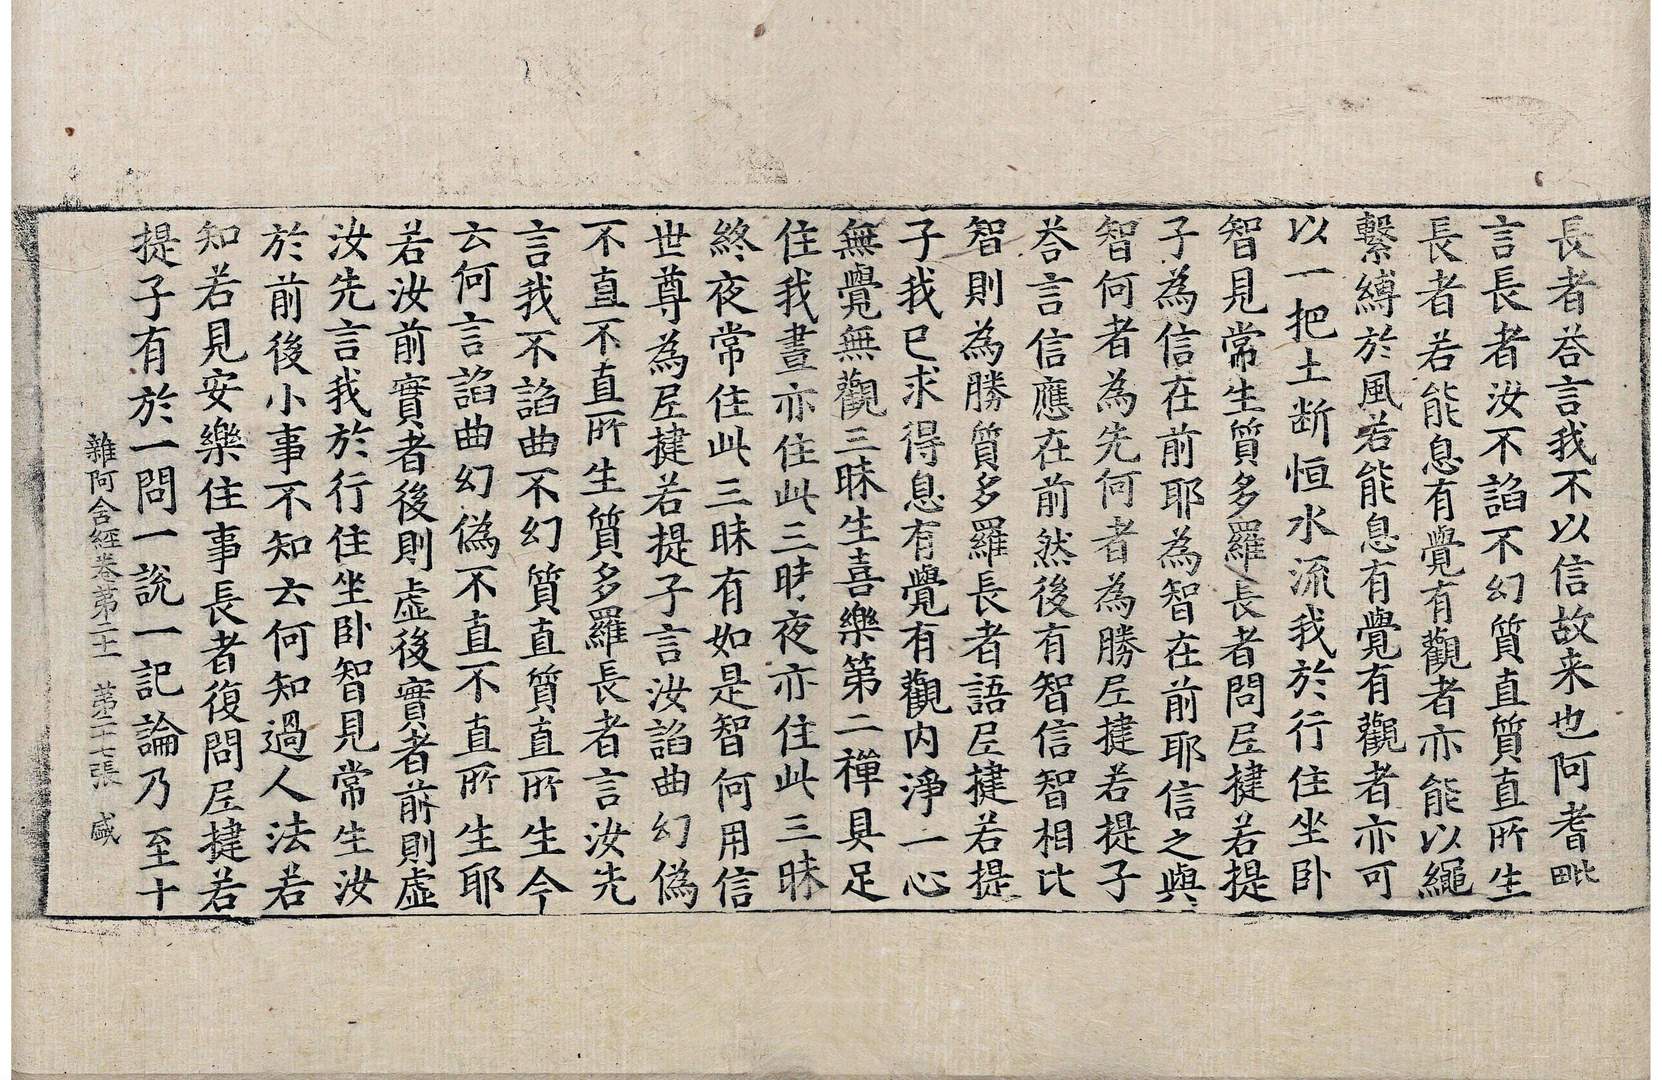 長者荅言我不以信故来也阿耆毗
言長者汝不諂不幻質直質直所生
長者若能息有覺有觀者亦能以繩
繫縛於風若能息有覺有觀者亦可
以一把土断恒水流我於行住坐卧
智見常生質多羅長者問𡰱揵若提
子為信在前耶為智在前耶信之與
智何者為先何者為勝𡰱揵若提子
荅言信應在前然後有智信智相比
智則為勝質多羅長者語𡰱揵若提
子我已求得息有覺有觀内淨一心
無覺無觀三昧生喜樂第二禪具足
住我晝亦住此三昧夜亦住此三昧
終夜常住此三昧有如是智何用信
世尊為𡰱揵若提子言汝諂曲幻偽
不直不直所生質多羅長者言汝先
言我不諂曲不幻質直質直所生今
云何言諂曲幻偽不直不直所生耶
若汝前實者後則虛後實者前則虛
汝先言我於行住坐卧智見常生汝
於前後小事不知云何知過人法若
知若見安樂住事長者復問𡰱揵若
提子有於一問一說一記論乃至十
雜阿含經卷第二十一 第二十七張 盛